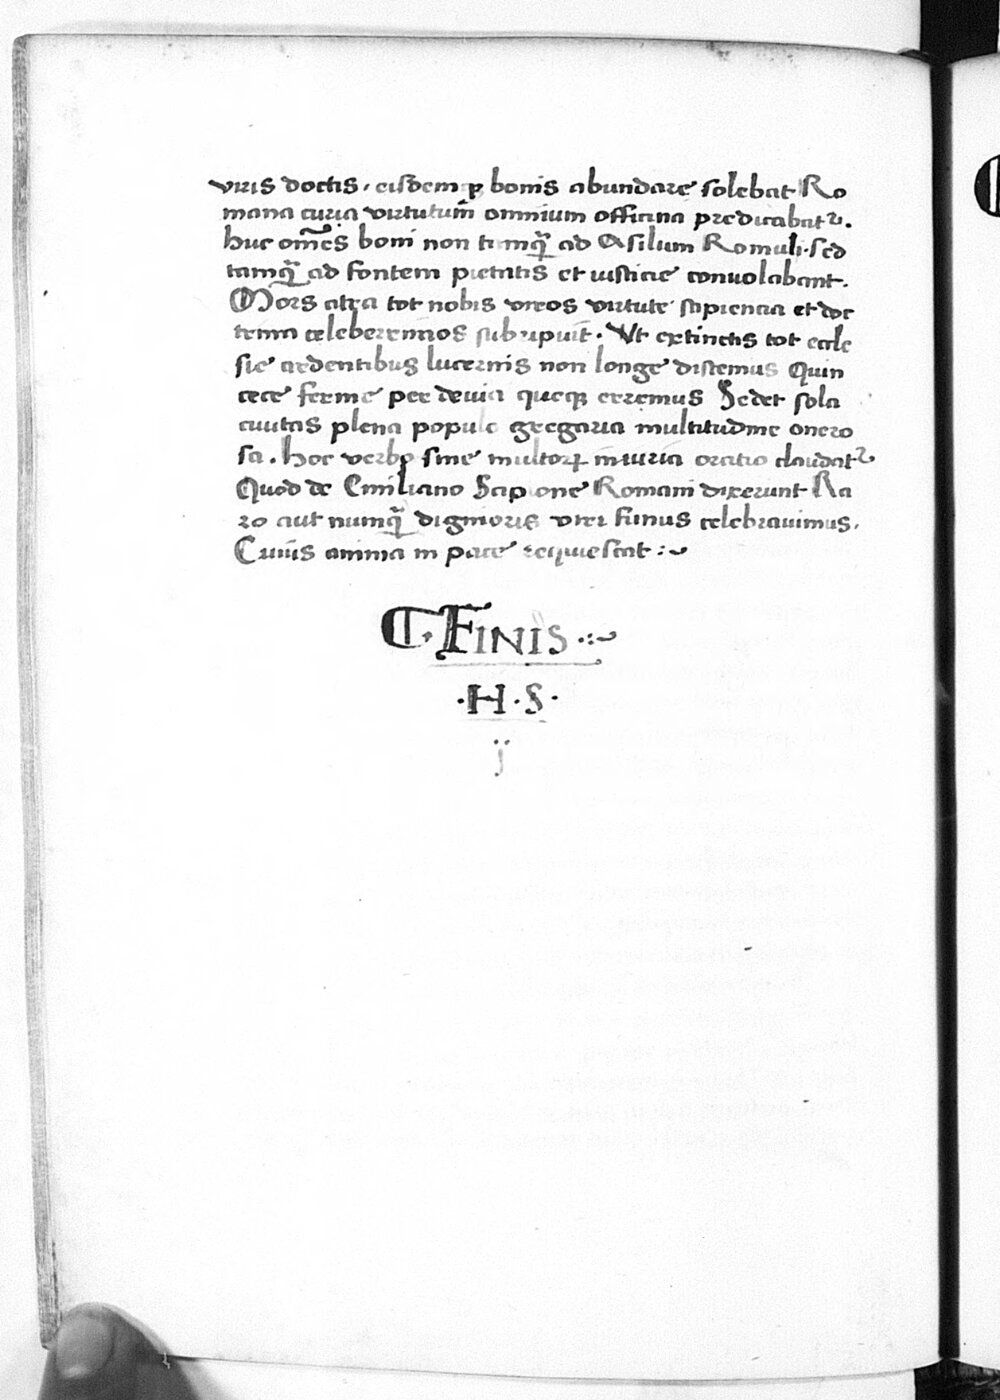 viris doctis, eisdemqꝫ bonis abundare solebat Ro
mana curia virtutum̄ omnium officina predicabatꝛ.
huc om̃es boni non tamqᷓ ad Asilum Romuli·sed
tamqᷓ ad fontem pietatis et iusticie convolabant.
Mors atra tot nobis viros virtute sapiencia et doc
trina celeberrimos subripuit. Vt extinctis tot eccle
sie ardentibus lucernis non longe distemus Quin
cece ferme per devia queqꝫ erremus Sedet sola
civitas plena populo gregaria multitudine onero
sa. hoc verbo sine multoꝝ iniuria oratio claudatꝛ
Quod de Emiliano Scipione Romani dixerunt Ra
ro aut numqᷓ dignioris viri funus celebravimus,
Cuiús anima in pace requiescat :~
C. FINIS ·:~
·H·S·
ÿ